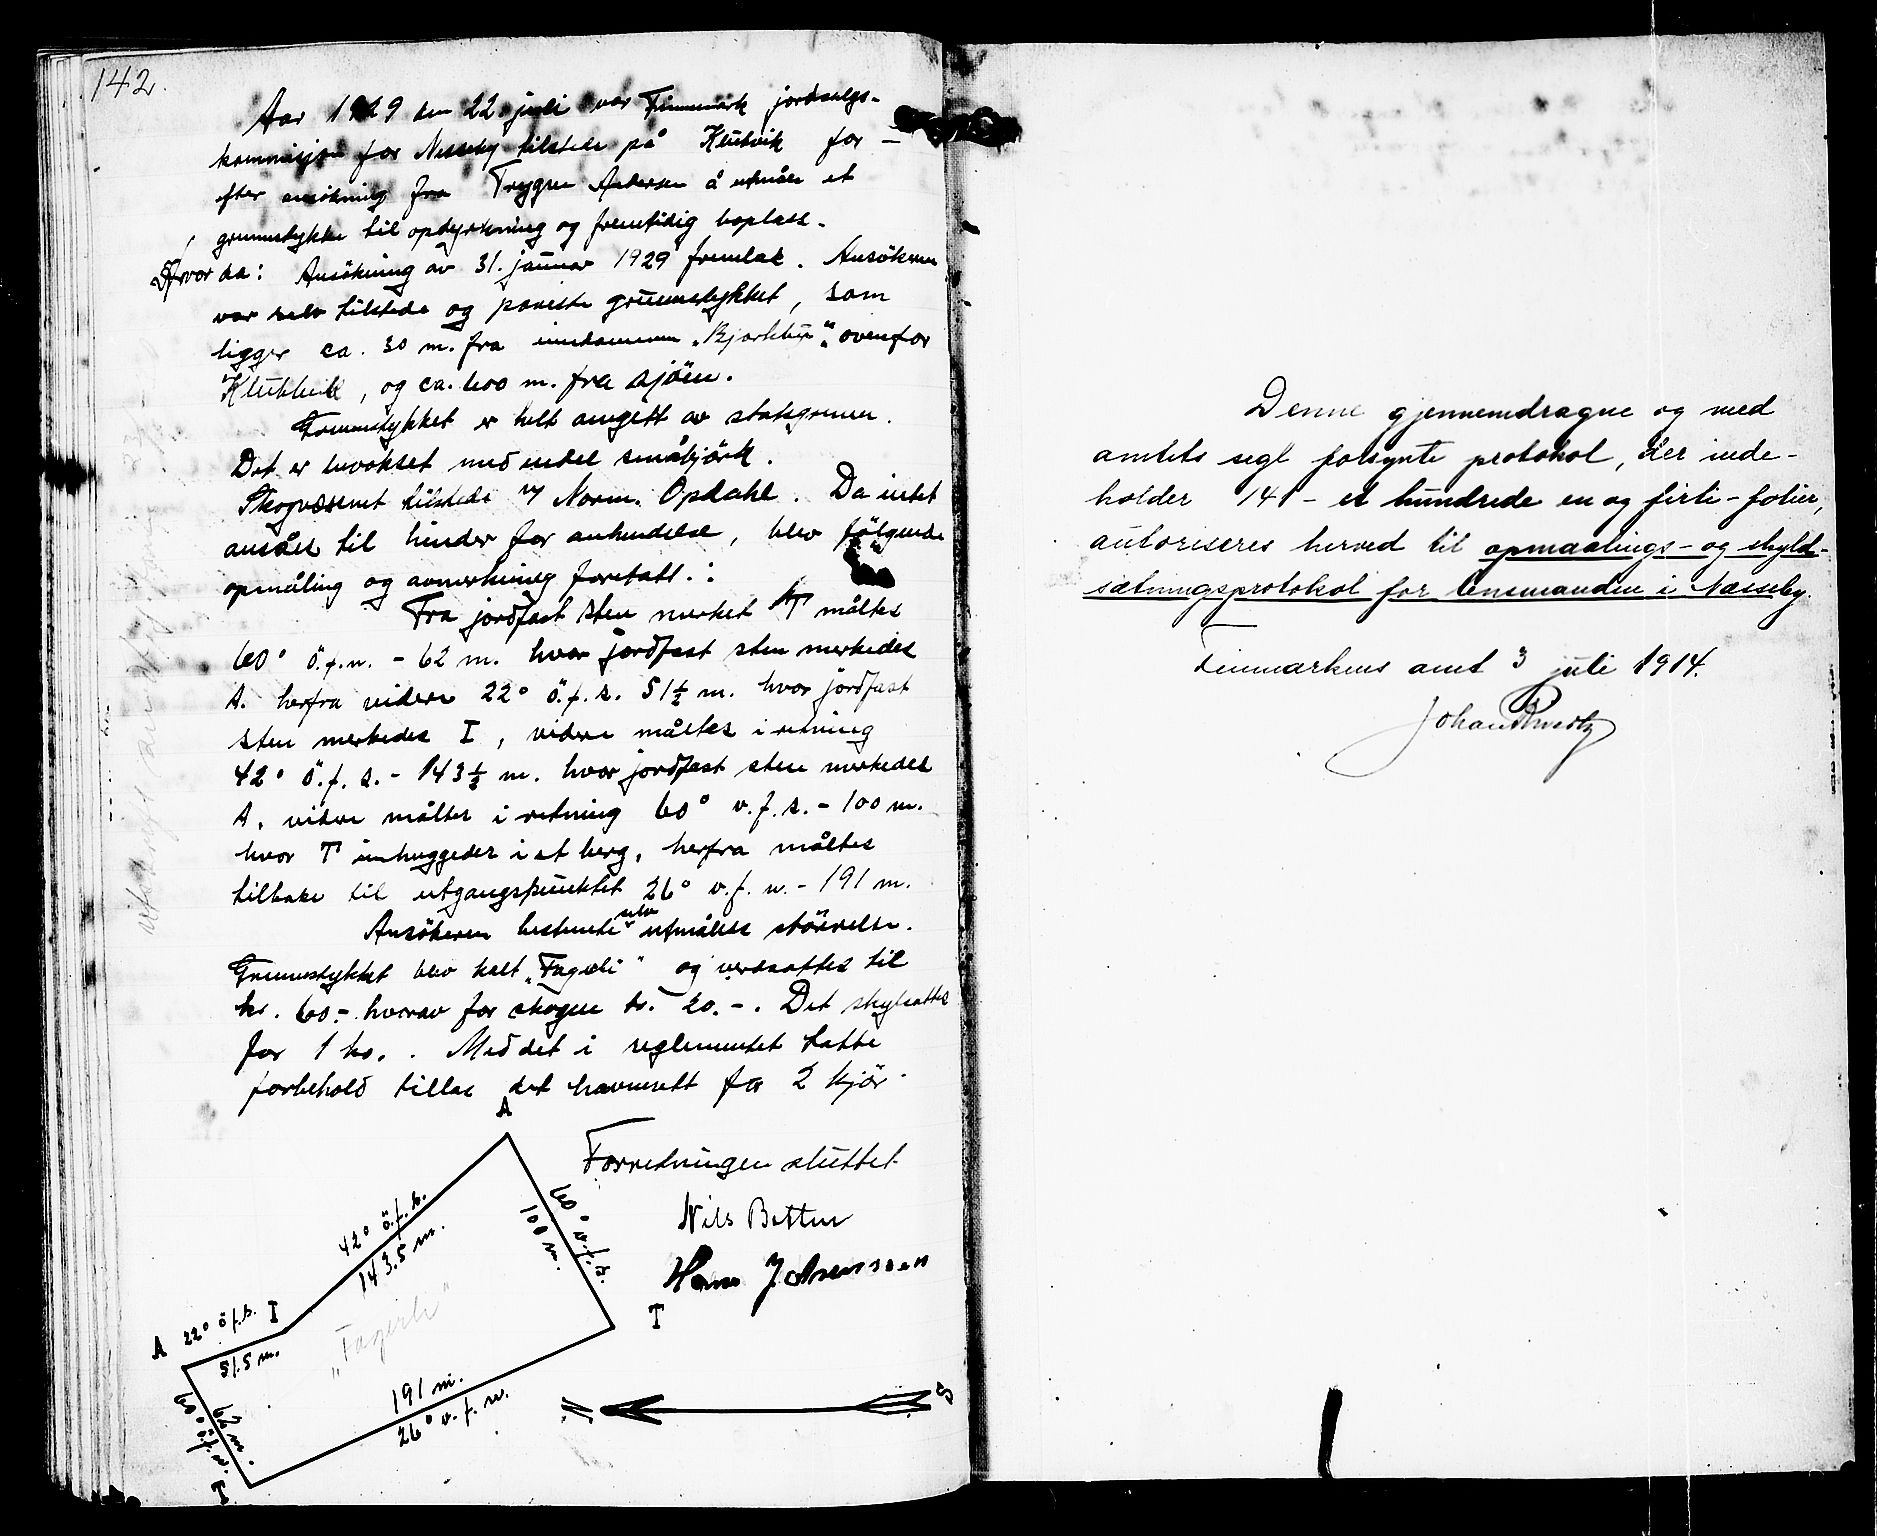 142.
Aar 1929 den 22 juli var Finnmark jordsalgs-
kommisjon for Nesseby tilstede på Klubvik for -
efter ansökning fra Trygve Andersen å utmåle et
grunnstykke til opdyrkning og fremtidig boplass.
Hvor da: Ansökning av 31. januar 1929 fremlae. Ansökeren
var selv tilstede og påviste grunnstykket, som
ligger ca. 30 m. fra eiendommen "Bjørkli" ovenfor
Klubbvik, og ca. 400 m. fra sjöen.
Grunnstykket er helt omgitt av statsgrunn.
Det er bevokset med endel småbjörk.
Skogvesenet tilstede v/ Norm. Opdahl. Da intet
ansåes til hinder for avhendelse, blev fölgende
opmåling og avmerkning foretatt.:
Fra jordfast sten merket T måltes
60° ö.f.n. - 62 m. hvor jordfast sten merkedes
A. herfra videre 22° ö.f.s. 51½ m. hvor jordfast
sten merkedes I, videre måltes i retning
42° ö.f.s. - 143½ m. hvor jordfast sten merkedes
A. videre måltes i retning 60° v.f.s. - 100 m.
hvor T innhuggedes i et berg, herfra måltes
tilbake til utgangspunktet 26° v.f.n. - 191 m.
Ansökeren bestemte selv utmålets störrelse.
Grunnstykket blev kalt "Fagerli" og verdsattes til
kr. 60.- hvorav for skogen kr. 20.-. Det skyldsattes
for 1 kr. . Med det i reglementet tatte
forbehold tillaes det havnerett for 2 kjör.
Forretningen sluttet.
Nils Betten
Hans Johnsen
A
42° ö.f.s.
143.5 m.
60° v.f.s.
100 m.
A 22° ö.f.s. I
51.5 m.
"Fagerli"
T
191 m.
26° v.f.n.
62 m.
60° ö.f.n.
T
N
S
Denne gjennemdragne og med
amtets segl forsynte protokol, der inde-
holder 141 - et hundrede en og firti - folier,
autoriseres herved til opmaalings- og skyld-
sætningsprotokol for lensmanden i Næsseby.
Finmarkens amt 3 juli 1914.